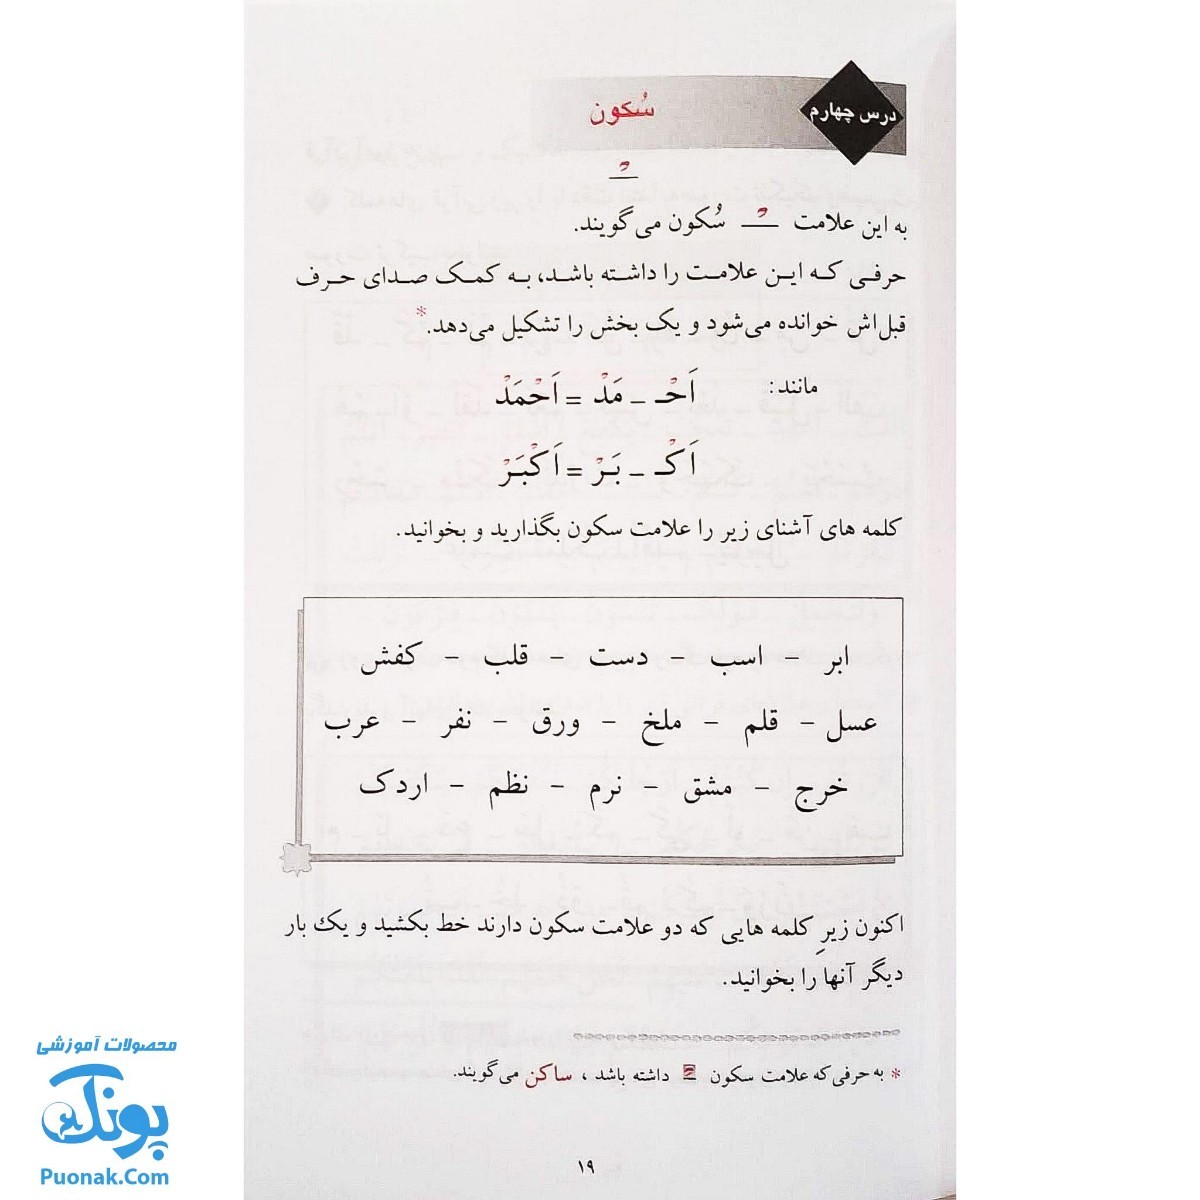 درس چهارم
سُکون
به این علامت ـْـ سُکون می‌گویند.
حرفـی کـه ایـن علامـت را داشتـه باشـد، بـه کمـک صـدای حـرف
قبل‌اش خوانده می‌شود و یک بخش را تشکیل می‌دهد.*
مانند: اَحْـ ـ مَدْ = اَحْمَدْ
اَکْـ ـ بَـرْ = اَکْبَـرْ
کلمه های آشنای زیر را علامت سکون بگذارید و بخوانید.
ابر – اسب – دست – قلب – کفش
عسل – قلم – ملخ – ورق – نفر – عرب
خرج – مشق – نرم – نظم – اردک
اکنون زیرِ کلمه هایی که دو علامت سکون دارند خط بکشید و یک بار
دیگر آنها را بخوانید.
* به حرفی که علامت سکون ـْـ داشته باشد ، ساکن می‌گویند.
۱۹
محصولات آموزشی
پونک
Puonak.Com